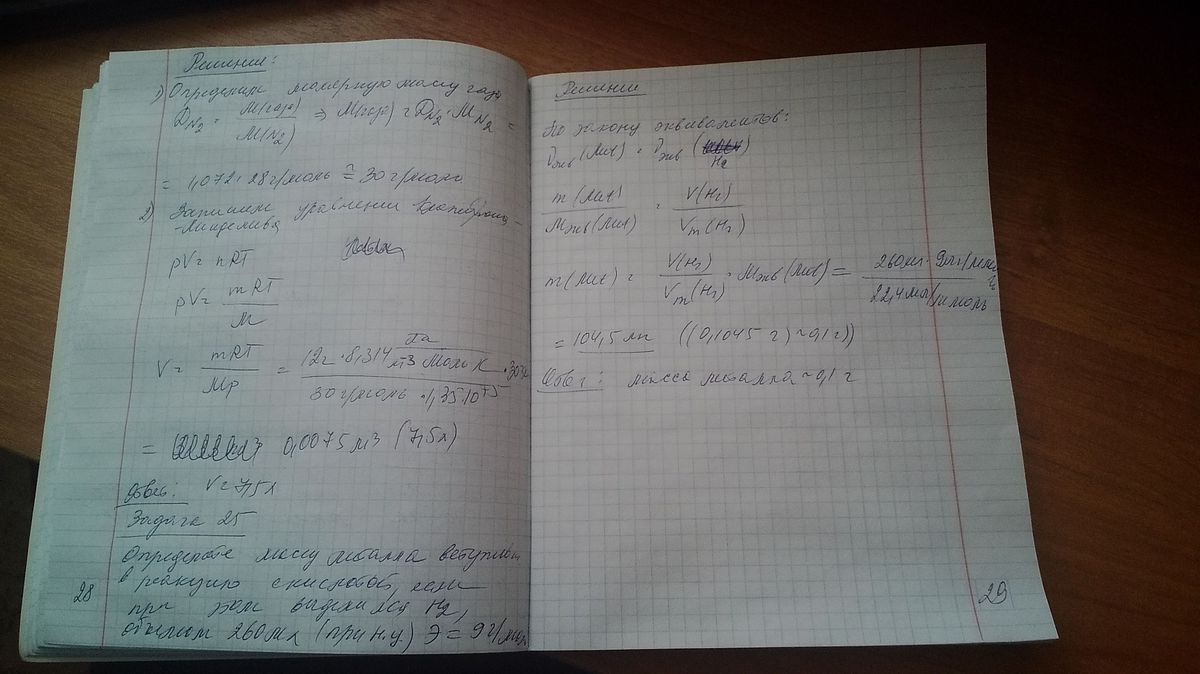 Решение:
1) Определим молярную массу газа
D_N2 = M(газа) / M(N2) ⇒ M(газа) = D_N2 · M_N2 =
= 1,072 · 28 г/моль ≅ 30 г/моль
2) Запишем уравнение
-Менделеева
pV = nRT
pV = mRT / M
V = mRT / Mp = 12г · 8,314 Па м^3 / моль К · / 30 г/моль · 1,35·10^+5
= 0,0075 м3 (7,5л)
Ответ: V = 7,5л
Задача 25
Определите массу металла
в реакцию с кислотой, если
при этом выделился H2,
объемом 260 мл (при н.у.) Э = 9 г/моль
28
Решение
По закону эквивалентов:
ν_экв (Met) = ν_экв (H2)
m (Met) / M_экв (Met) = V(H2) / V_m (H2)
m (Met) = V(H2) / V_m (H2) · M_экв (Met) = 260 мл · / 22,4 мл/ммоль
= 104,5 мг ((0,1045 г) ~ 0,1 г))
Ответ: масса металла ~ 0,1 г
29